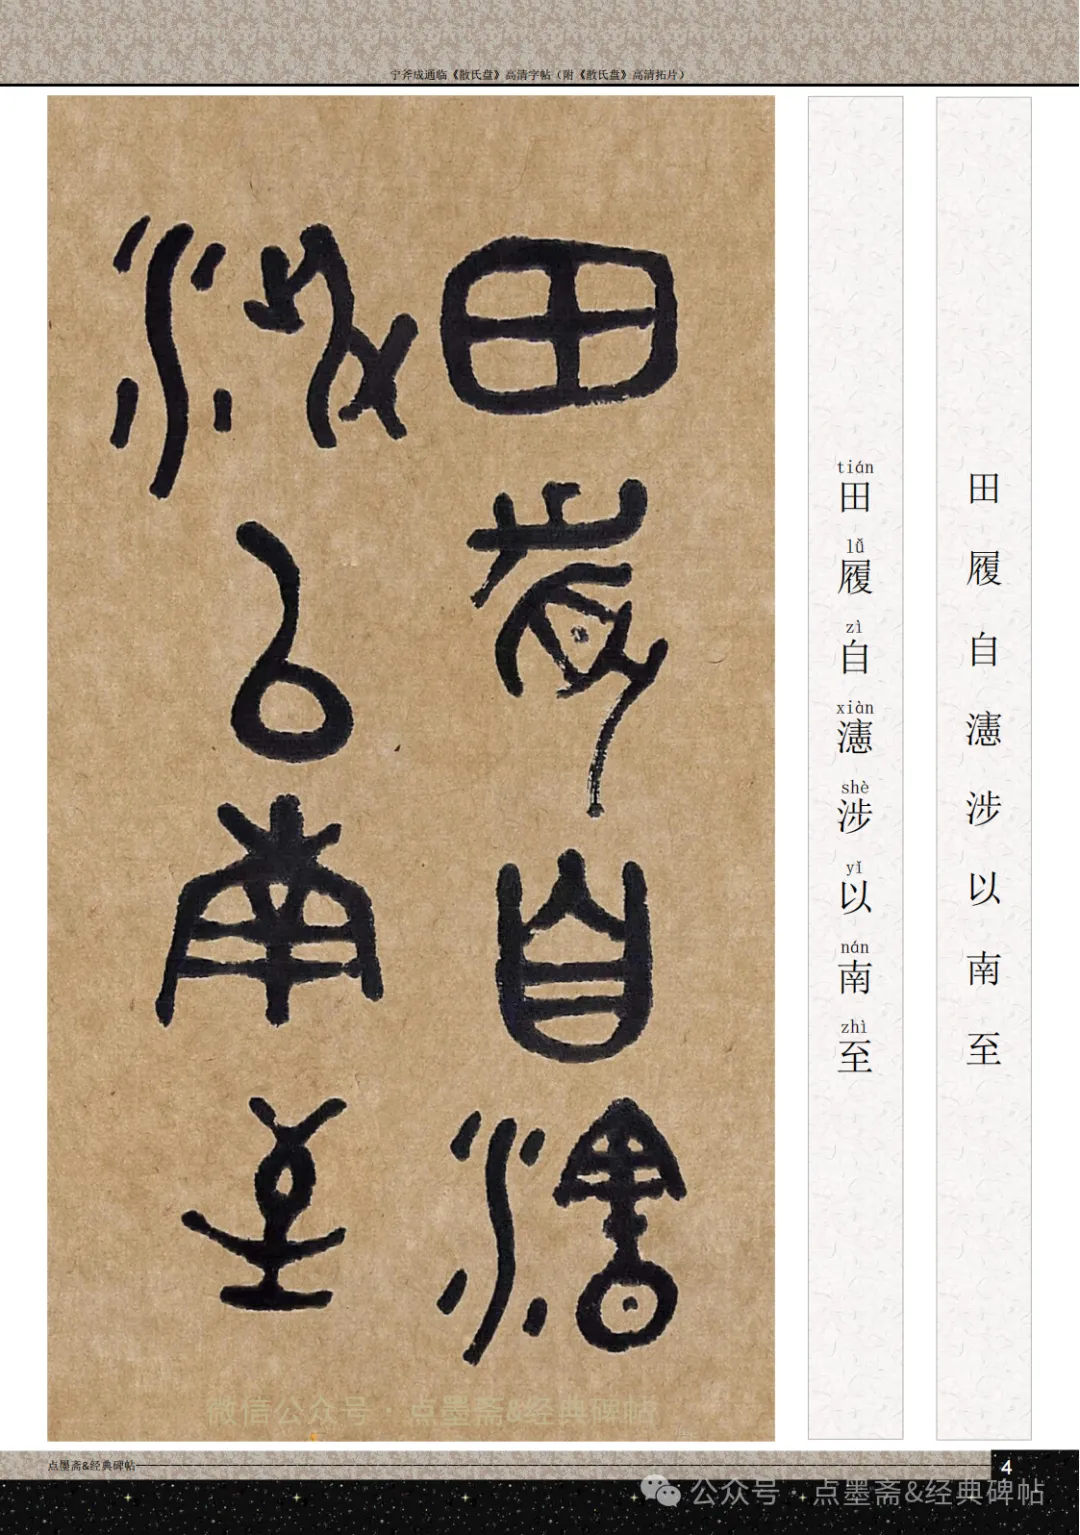 宁斧成通临《散氏盘》高清字帖（附《散氏盘》高清拓片）
田履自瀗
涉以南至
tián lǚ zì xiàn shè yǐ nán zhì
田履自瀗涉以南至
田履自瀗涉以南至
微信公众号·点墨斋&经典碑帖
点墨斋&经典碑帖
4
公众号·点墨斋&经典碑帖